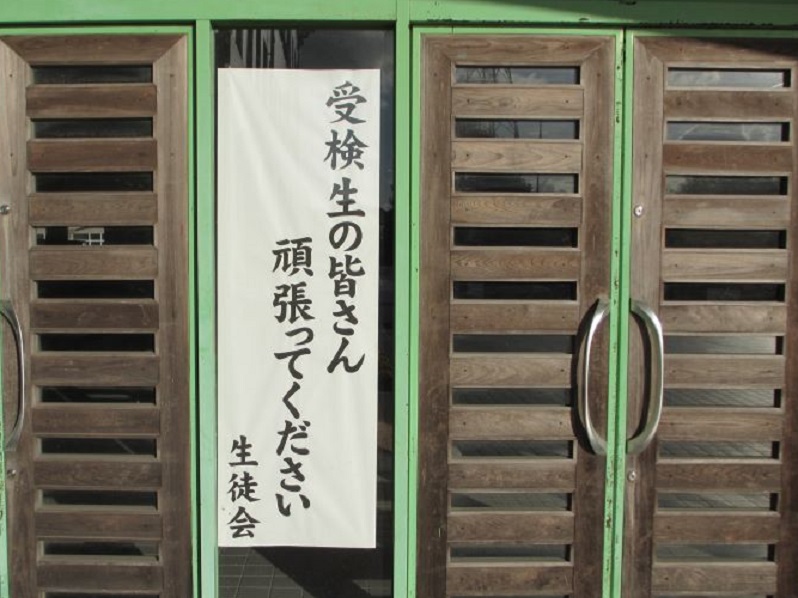 受検生の皆さん
頑張ってください
生徒会